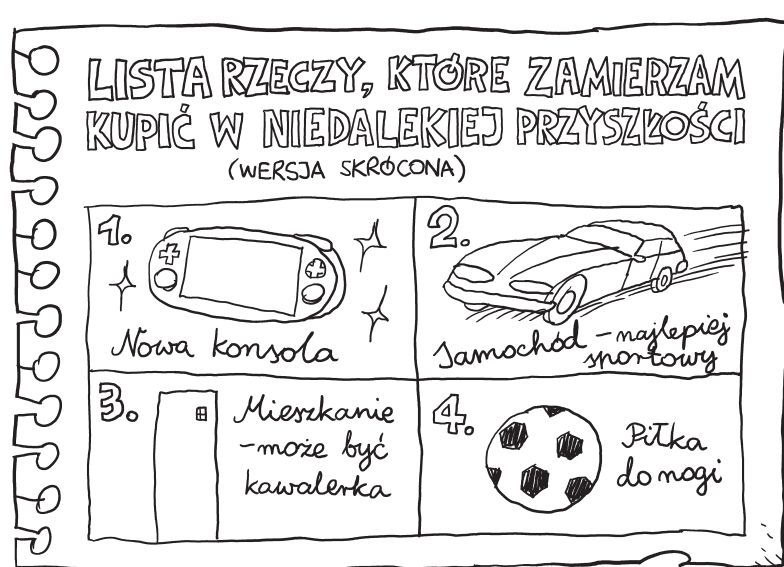 LISTA RZECZY, KTÓRE ZAMIERZAM
KUPIĆ W NIEDALEKIEJ PRZYSZŁOŚCI
(WERSJA SKRÓCONA)
1.
Nowa konsola
2.
Samochód - najlepiej
sportowy
3.
Mieszkanie
- może być
kawalerka
4.
Piłka
do nogi